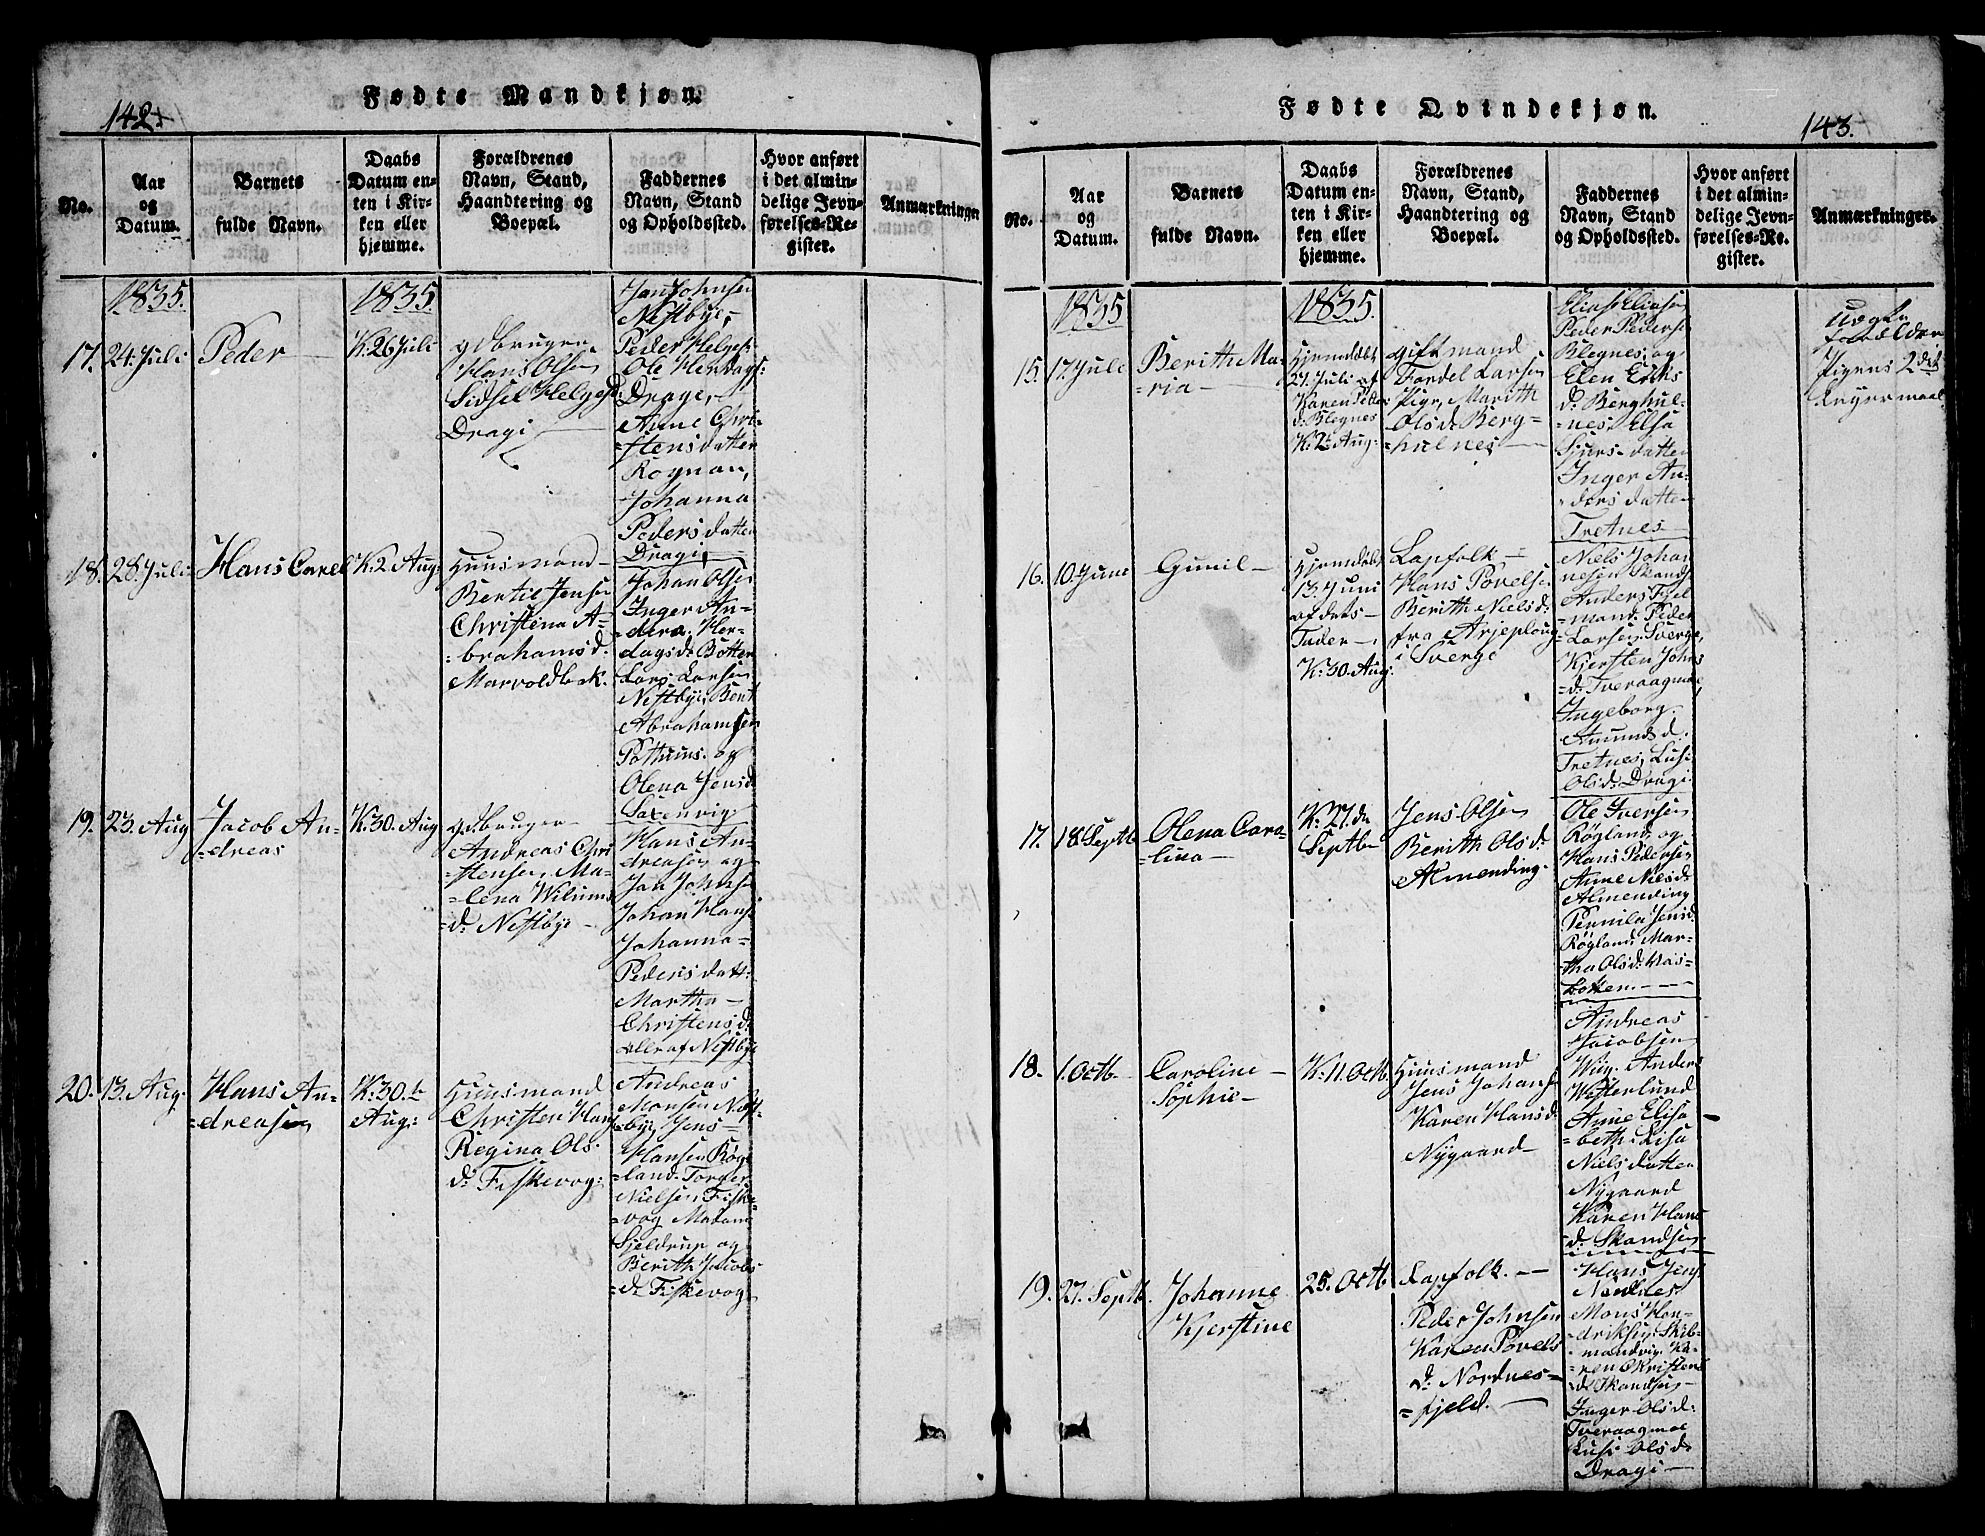 142.
Fødte Mandkjøn.
No.
Aar
og
Datum.
Barnets
fulde Navn.
Daabs
Datum en-
ten i Kir-
ken eller
hjemme.
Forældrenes
Navn, Stand,
Haandtering og
Boepæl.
Faddernes
Navn, Stand
og Opholdssted.
Hvor anført
i det almin-
delige Jevn-
førelses-Re-
gister.
Anmærkninger
1835.
17. 24. Juli
Peder
1835.
K: 26 Juli
gdbruger
Hans Olsen
Sidsel Helgesd:
Dragi
Jan Johnsen
Nestbye,
Peder Helges:
Ole Herdags:
Drage,
Anne Chri-
stensdatter
Rognan,
Johanna
Pedersdatter
Dragi,
18. 28. Juli
Hans Carel
K: 2 Aug:
Huusmand
Bertil Jensen
Christena A-
=brahamsd.
Marvoldbek.
Johan Olsen
Inger An-
=ders. Her-
dagsd: Botten
Lars Larsen
Nestbye, Bent
Abrahamsen
Pothuus. og
Olena Jensd:
Saxenvig
19. 23. Aug
Jacob An-
=dreas
K: 30. Aug
gdbruger
Andreas Chri
=stensen, Ma-
=lena Wilums
=d: Nestbye
Hans An-
dreasen og
Jan Johns:
Johan Hans:
Johanna
Pedersdatt:
Martha
Christensd:
alle af Nestbye
20. 13. Aug.
Hans An-
=dreasen
K: 30.te
Aug:
Huusmand
Christen Hans
Regina Ols-
d: Fiskevog:
Andreas
Monsen Nest-
=bye, Jens
Hansen Røg-
=land. Torger
Nielsen, Fiske-
=vog Madam
Sjeldrup og
Berith Jacobs
=d: Fiskevog
Fødte Qvindekjøn.
143.
No.
Aar
og
Datum.
Barnets
fulde Navn.
Daabs
Datum en-
ten i Kir-
ken eller
hjemme.
Forældrenes
Navn, Stand,
Haandtering og
Boepæl.
Faddernes
Navn, Stand
og Opholdssted.
Hvor anført
i det almin-
delige Jevn-
førelses-Re-
gister.
Anmærkninger.
1835
15. 17. Juli
Berith Ma-
=ria
1835.
Hjemdøbt
21. Juli af
Karen Peter
d: Blegnes
K: 2t Aug:
gift mand
Fordel Larsen
Pige, Marith
Olsd: Berg-
=hulnes
Elias Eliasen
Peder Peders:
Blegnes, og
Elen Eriks
d: Berghul-
=nes, Elsa
Sjurs-datter
Inger An-
=dersdatter
Tretnes
Uægte
forældre
Pigens 2det
Leyermaal
16. 10. June
Gunil
Hjemdøbt
13. Juni
af dets
Fader
K: 30. Aug:
Lapfolk
Hans Povelse
Berith Nielsd:
fra Arjeploug
i Sverge
Niels Johan
nesen Skands
Anders Fjel
mand. Peder
Larsen, Sverge,
Kjersten Johns
=d: Tveraagmoe,
Ingeborg
Amundsd.
Tretnes, Lusi
Olsd: Dragi
17. 18. Septb
Olena Caro-
=lina
K: 27. de
Septb
Jens Olsen
Berith Olsd:
Almending.
Ole Iversen
Røgland, og
Hans Pedersen
Anne Nielsd:
Almending
Pernila Jensd
Røgland, Mar-
tha Olsd: Vas-
botten.
18. 1. Octb
Caroline
Sophie
K: 11. Octb.
Huusmand
Jens Johans:
Karen Hansd:
Nygaard
Andreas
Jacobsen
Wiig, Anders
Westerlund
Anne Elisa
beth: Lisa
Nielsdatter
Nygaard
Karen Hans
d: Skandsen
19. 27. Septb.
Johanne
Kjerstine
25. Octb
Lapfolk.
Peder Johnsen
Karen Povels
d: Nordnes-
=fjeld.
Hans Jens:
Nordnes
Mons Hen-
=driksen Skib-
mandvig, Ka-
=ren Christens
d: Skandsen
Inger Olsd:
Tveraagmoe
Lusi Olsd:
Dragi